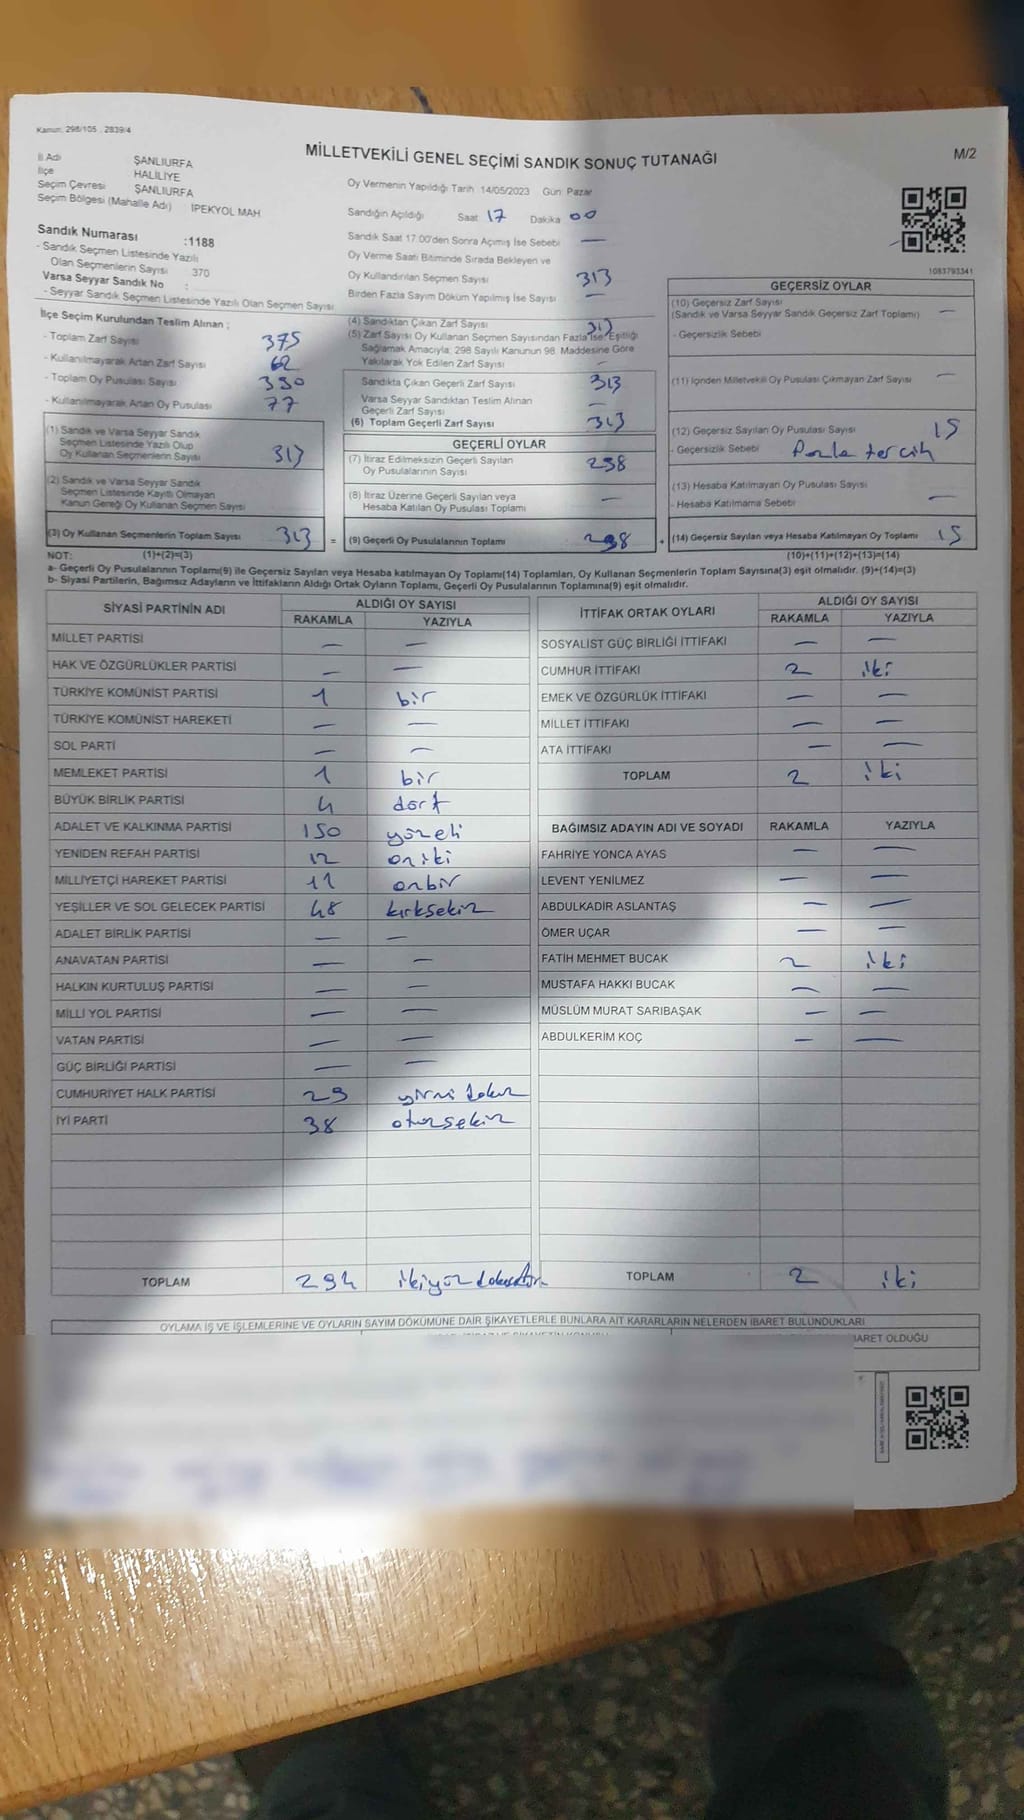 Kanun: 298/105 , 2839/4
MİLLETVEKİLİ GENEL SEÇİMİ SANDIK SONUÇ TUTANAĞI
M/2
İl Adı ŞANLIURFA
İlçe HALİLİYE
Seçim Çevresi ŞANLIURFA
Seçim Bölgesi (Mahalle Adı) : İPEKYOL MAH
Sandık Numarası :1188
- Sandık Seçmen Listesinde Yazılı
Olan Seçmenlerin Sayısı 370
Varsa Seyyar Sandık No :
- Seyyar Sandık Seçmen Listesinde Yazılı Olan Seçmen Sayısı
Oy Vermenin Yapıldığı Tarih 14/05/2023 Gün: Pazar
Sandığın Açıldığı Saat 17 Dakika 00
Sandık Saat 17:00'den Sonra Açılmış İse Sebebi —
Oy Verme Saati Bitiminde Sırada Bekleyen ve
Oy Kullandırılan Seçmen Sayısı 313
Birden Fazla Sayım Döküm Yapılmış İse Sayısı —
1083793341
İlçe Seçim Kurulundan Teslim Alınan ;
- Toplam Zarf Sayısı 375
- Kullanılmayarak Artan Zarf Sayısı 62
- Toplam Oy Pusulası Sayısı 390
- Kullanılmayarak Artan Oy Pusulası 77
(1) Sandık ve Varsa Seyyar Sandık
Seçmen Listesinde Yazılı Olup
Oy Kullanan Seçmenlerin Sayısı 313
(2) Sandık ve Varsa Seyyar Sandık
Seçmen Listesinde Kayıtlı Olmayan
Kanun Gereği Oy Kullanan Seçmen Sayısı
(3) Oy Kullanan Seçmenlerin Toplam Sayısı 313 =
(4) Sandıktan Çıkan Zarf Sayısı 313
(5) Zarf Sayısı Oy Kullanan Seçmen Sayısından Fazla İse, Eşitliği
Sağlamak Amacıyla; 298 Sayılı Kanunun 98. Maddesine Göre
Yakılarak Yok Edilen Zarf Sayısı —
Sandıkta Çıkan Geçerli Zarf Sayısı 313
Varsa Seyyar Sandıktan Teslim Alınan
Geçerli Zarf Sayısı —
(6) Toplam Geçerli Zarf Sayısı 313
GEÇERLİ OYLAR
(7) İtiraz Edilmeksizin Geçerli Sayılan
Oy Pusulalarının Sayısı 298
(8) İtiraz Üzerine Geçerli Sayılan veya
Hesaba Katılan Oy Pusulası Toplamı —
(9) Geçerli Oy Pusulalarının Toplamı 298 +
GEÇERSİZ OYLAR
(10) Geçersiz Zarf Sayısı
(Sandık ve Varsa Seyyar Sandık Geçersiz Zarf Toplamı) —
- Geçersizlik Sebebi
(11) İçinden Milletvekili Oy Pusulası Çıkmayan Zarf Sayısı —
(12) Geçersiz Sayılan Oy Pusulası Sayısı 15
- Geçersizlik Sebebi fazla tercih
(13) Hesaba Katılmayan Oy Pusulası Sayısı
- Hesaba Katılmama Sebebi —
(14) Geçersiz Sayılan veya Hesaba Katılmayan Oy Toplamı 15
NOT: (1)+(2)=(3)
(10)+(11)+(12)+(13)=(14)
a- Geçerli Oy Pusulalarının Toplamı(9) ile Geçersiz Sayılan veya Hesaba katılmayan Oy Toplamı(14) Toplamları, Oy Kullanan Seçmenlerin Toplam Sayısına(3) eşit olmalıdır. (9)+(14)=(3)
b- Siyasi Partilerin, Bağımsız Adayların ve İttifakların Aldığı Ortak Oyların Toplamı, Geçerli Oy Pusulalarının Toplamına(9) eşit olmalıdır.
SİYASİ PARTİNİN ADI ALDIĞI OY SAYISI
RAKAMLA YAZIYLA
MİLLET PARTİSİ — —
HAK VE ÖZGÜRLÜKLER PARTİSİ — —
TÜRKİYE KOMÜNİST PARTİSİ 1 bir
TÜRKİYE KOMÜNİST HAREKETİ — —
SOL PARTİ — —
MEMLEKET PARTİSİ 1 bir
BÜYÜK BİRLİK PARTİSİ 4 dört
ADALET VE KALKINMA PARTİSİ 150 yüzelli
YENİDEN REFAH PARTİSİ 12 oniki
MİLLİYETÇİ HAREKET PARTİSİ 11 onbir
YEŞİLLER VE SOL GELECEK PARTİSİ 48 kırksekiz
ADALET BİRLİK PARTİSİ — —
ANAVATAN PARTİSİ — —
HALKIN KURTULUŞ PARTİSİ — —
MİLLİ YOL PARTİSİ — —
VATAN PARTİSİ — —
GÜÇ BİRLİĞİ PARTİSİ — —
CUMHURİYET HALK PARTİSİ 29 yirmi dokuz
İYİ PARTİ 38 otuzsekiz
TOPLAM 294 ikiyüz doksandört
İTTİFAK ORTAK OYLARI ALDIĞI OY SAYISI
RAKAMLA YAZIYLA
SOSYALİST GÜÇ BİRLİĞİ İTTİFAKI — —
CUMHUR İTTİFAKI 2 iki
EMEK VE ÖZGÜRLÜK İTTİFAKI — —
MİLLET İTTİFAKI — —
ATA İTTİFAKI — —
TOPLAM 2 iki
BAĞIMSIZ ADAYIN ADI VE SOYADI RAKAMLA YAZIYLA
FAHRİYE YONCA AYAS — —
LEVENT YENİLMEZ — —
ABDULKADİR ASLANTAŞ — —
ÖMER UÇAR — —
FATİH MEHMET BUCAK 2 iki
MUSTAFA HAKKI BUCAK — —
MÜSLÜM MURAT SARIBAŞAK — —
ABDULKERİM KOÇ — —
TOPLAM 2 iki
OYLAMA İŞ VE İŞLEMLERİNE VE OYLARIN SAYIM DÖKÜMÜNE DAİR ŞİKAYETLERLE BUNLARA AİT KARARLARIN NELERDEN İBARET BULUNDUKLARI
İBARET OLDUĞU